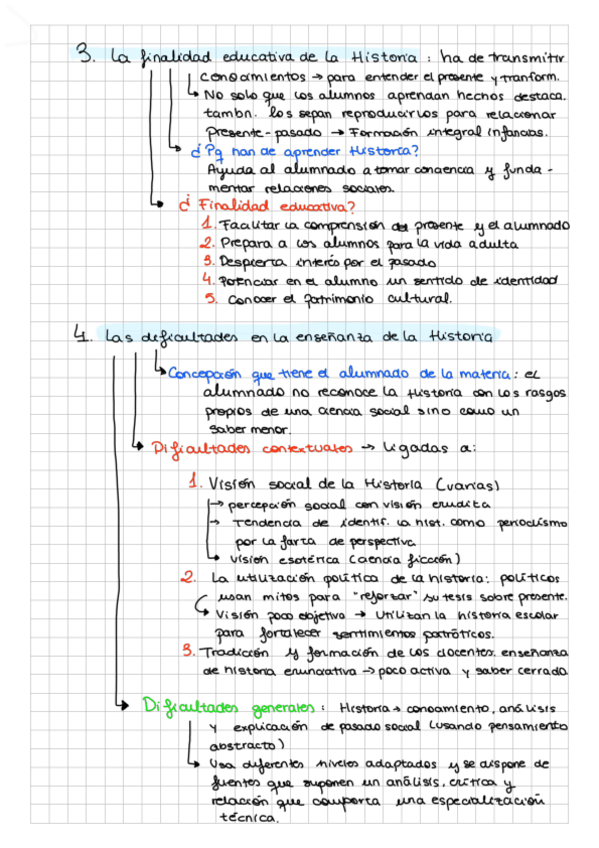 3. La finalidad educativa de la Historia : ha de transmitir
conocimientos → para entender el presente y tranform.
No solo que los alumnos aprendan hechos destaca.
tambn. los sepan reproducirlos para relacionar
presente-pasado → Formación integral infancias.
¿Pq han de aprender Historia?
Ayuda al alumnado a tomar conciencia y funda-
mentar relaciones sociales.
¿Finalidad educativa?
1. Facilitar la comprensión del presente y el alumnado
2. Prepara a los alumnos para la vida adulta
3. Despierta interés por el pasado
4. Potenciar en el alumno un sentido de identidad
5. Conocer el patrimonio cultural.
4. Las dificultades en la enseñanza de la Historia
Concepción que tiene el alumnado de la materia: el
alumnado no reconoce la Historia con los rasgos
propios de una ciencia social sino como un
saber menor.
Dificultades contextuales → ligadas a:
1. Visión social de la Historia (varias)
→ percepción social con visión erudita
→ Tendencia de identif. la hist. como periodismo
por la farta de perspectiva
→ visión esotérica (ciencia ficción)
2. La utilización política de la historia: políticos
usan mitos para "reforzar" su tesis sobre presente.
Visión poco objetiva → Utilizan la historia escolar
para fortalecer sentimientos patrióticos.
3. Tradición y formación de los docentes. enseñanza
de historia enunciativa → poco activa y saber cerrado
Dificultades generales : Historia → conocimiento, análisis
y explicación de pasado social (usando pensamiento
abstracto)
Usa diferentes niveles adaptados y se dispone de
fuentes que suponen un análisis, crítica y
relación que comporta una especialización
técnica.